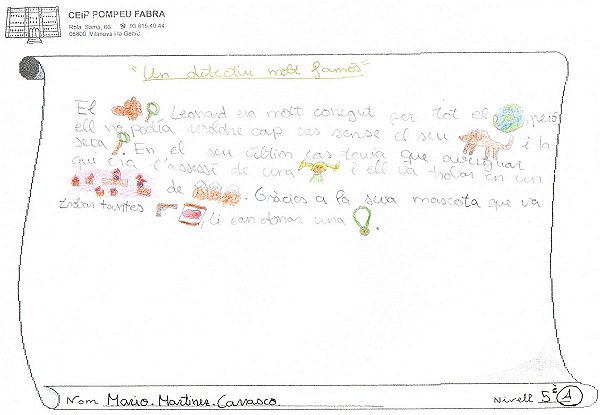 CEIP POMPEU FABRA
Rbla. Samà, 66 ☎ 93 815.40.44
08800 Vilanova i la Geltrú
"Un detectiu molt famós"
El Leonard era molt conegut per tot el , però
ell no podia resoldre cap cas sense el seu i la
seva . En el seu últim cas tenia que averiguar
qui era l'assessí de una i ell va trobar en un
de . Gràcies a la seva mascota que va
trobar tantes , li van donar una .
Nom Mario. Martinez. Carrasco.
Nivell 5è A